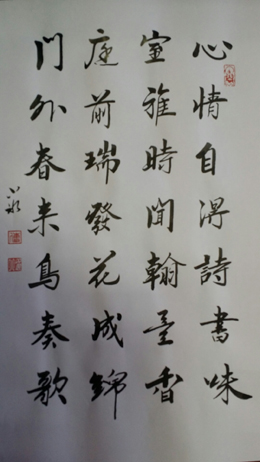 心情自得詩書味
室雅時聞翰墨香
庭前瑞發花成錦
門外春来鳥奏歌